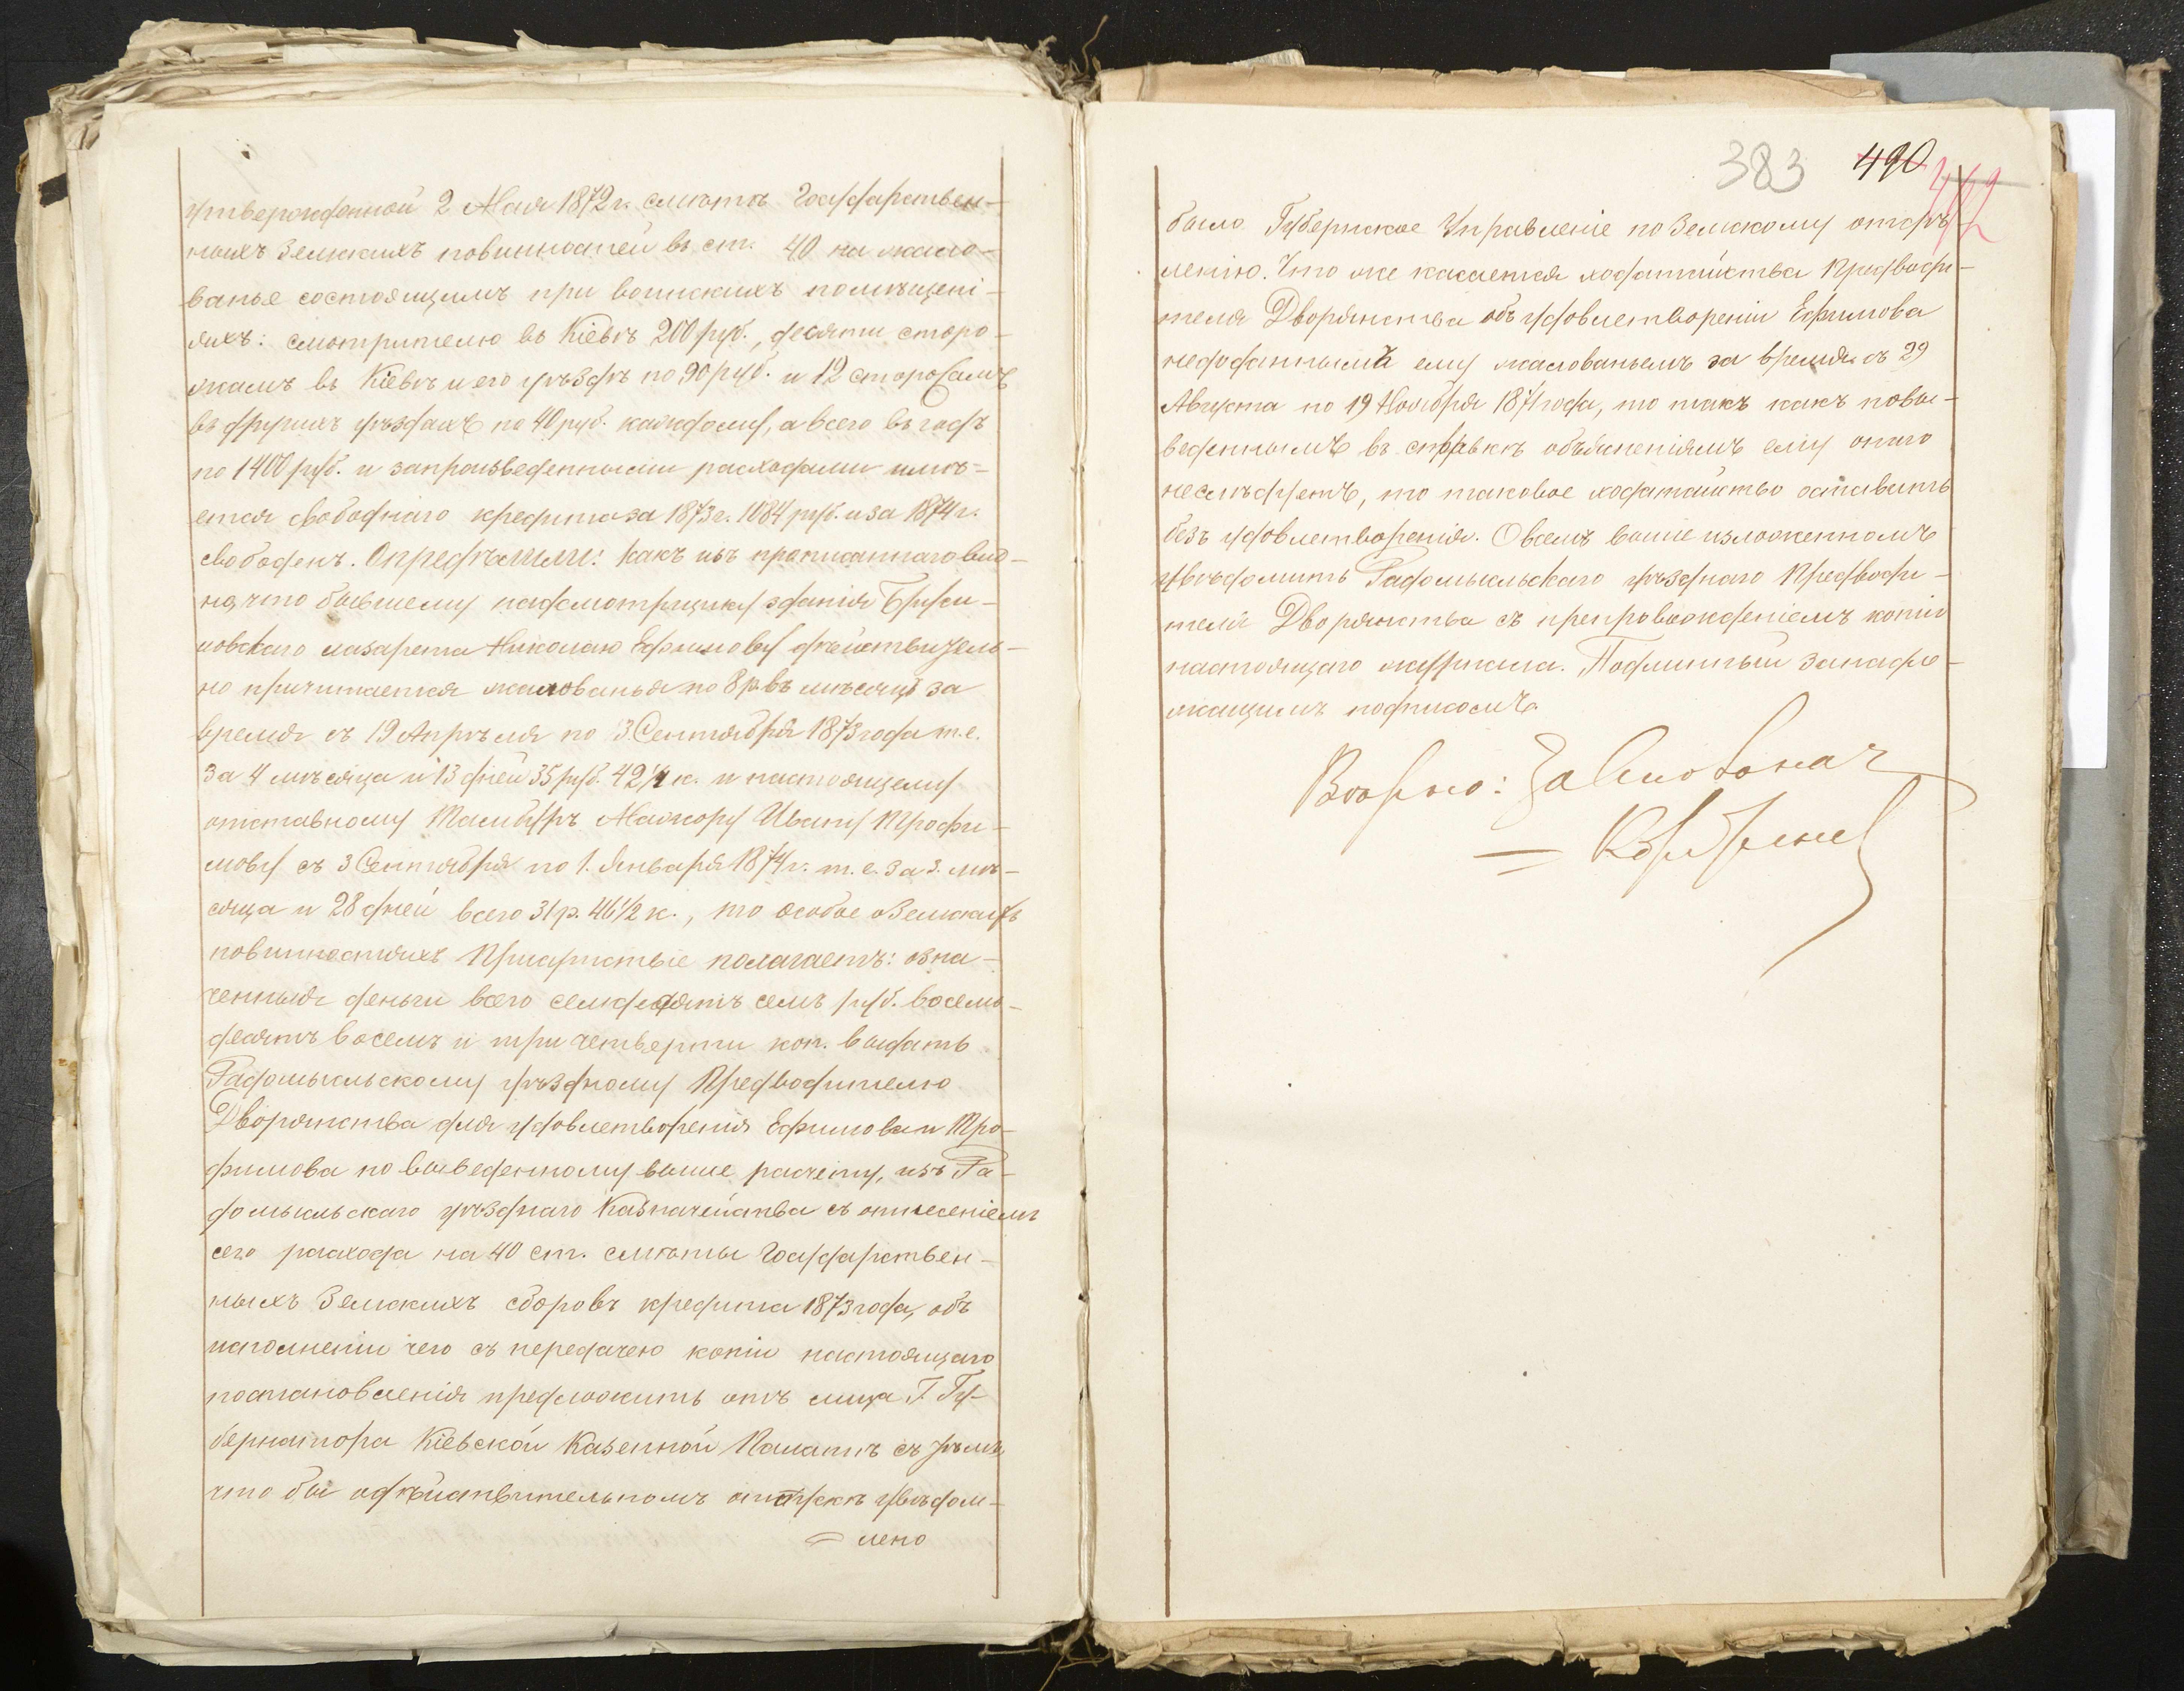 утвержденной 2 Мая 1872 г. смѣтѣ Государствен-
ныхъ Земскихъ повинностей въ ст. 40 на жало-
ванье состоящимъ при воинскихъ помѣщені-
яхъ: смотрителю въ Кіевѣ 200 руб., десяти сторо-
жамъ въ Кіевѣ и его уѣздѣ по 90 руб. и 12 сторожамъ
въ другихъ уѣздахъ по 40 руб. каждому, а всего въ годъ
по 1400 руб. и за произведенными расходами имѣ-
ется свободнаго кредита за 1873 г. 1084 руб. и за 1874 г.
свободенъ. Опредѣлили: Какъ изъ прописаннаго вид-
но, что бывшему надсмотрщику зданія
лазарета Николаю Ефимову дѣйствитель-
но причитается жалованья по 8 р. въ мѣсяцъ за
время съ 19 Апрѣля по 3 Сентября 1873 года т.е.
за 4 мѣсяца и 13 дней 35 руб. 42 1/4 к. и настоящему
отставному Тамбуръ Мажору Ивану Трофи-
мову съ 3 Сентября по 1. Января 1874 г. т. е. за 3. мѣ-
сяца и 28 дней всего 31 р. 46 1/2 к., то Особое о Земскихъ
повинностяхъ Присутствіе полагаетъ: озна-
ченныя деньги всего семдесятъ семь руб. восемь-
десятъ восемь и три четверти коп. выдать
Радомысльскому уѣздному Предводителю
Дворянства для удовлетворенія Ефимова и Тро-
фимова по выведенному выше расчету, изъ Ра-
домысльскаго уѣзднаго Казначейства съ отнесеніемъ
сего расхода на 40 ст. смѣты Государствен-
ныхъ Земскихъ сборовъ кредита 1873 года, объ
исполненіи чего съ передачею копіи настоящаго
постановленія предложить отъ лица Г. Гу-
бернатора Кіевской Казенной Палатѣ съ тѣмъ,
что бы о дѣйствительномъ отпускѣ увѣдом-
лено
383 490
было Губернское Управленіе по Земскому отдѣ-
ленію. Что же касается ходатайства Предводи-
теля Дворянства объ удовлетвореніи Ефимова
недоданнымъ ему жалованьемъ за время съ 29
Августа по 19 Ноября 1871 года, то такъ какъ по вы-
веденнымъ въ справкѣ объясненіямъ ему онаго
не слѣдуетъ, то таковое ходатайство оставить
безъ удовлетворенія. О всемъ выше изложенномъ
увѣдомить Радомысльскаго уѣзднаго Предводи-
теля Дворянства съ препровожденіемъ копіи
настоящаго журнала. Подлинный за надле-
жащимъ подписомъ.
Вѣрно: За